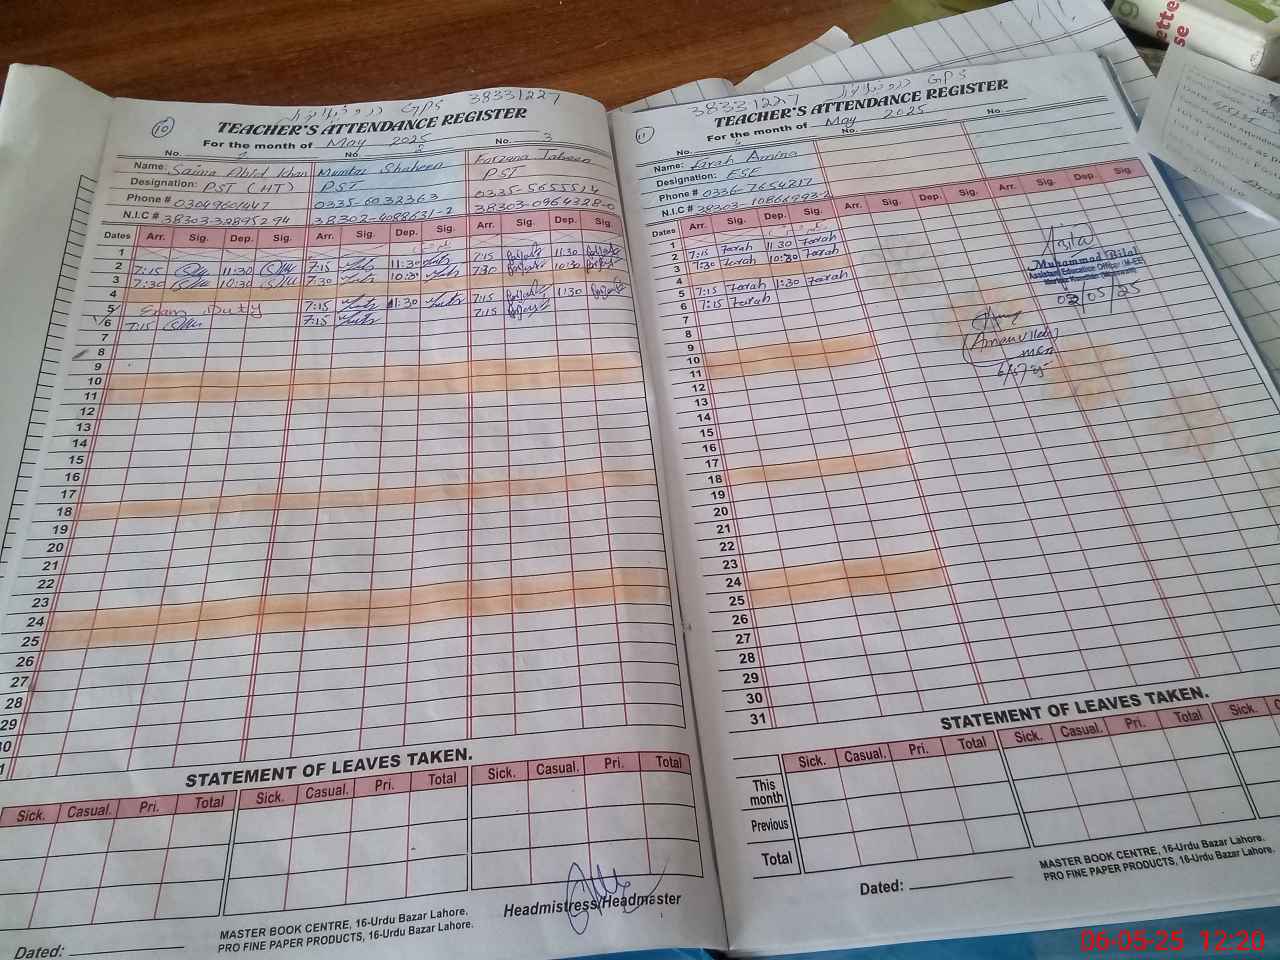 GPS 38331227
10
TEACHER'S ATTENDANCE REGISTER
For the month of May 2025
No. No. No. 3
Name: Saima Abid Khan Mumtaz Shaheen Farzana Tabeen
Designation: PST (HT) PST PST
Phone # 03049601447 0335-6032363 0335-5655514
N.I.C# 38303-32895294 38302-4088631-2 38303-0964328-0
Dates Arr. Sig. Dep. Sig. Arr. Sig. Dep. Sig. Arr. Sig. Dep. Sig.
1
2 7:15 11:30 7:15 11:30 7:15 11:30
3 7:30 10:30 7:30 10:30 7:30 10:30
4
5 Exam Duty 7:15 11:30 7:15 11:30
6 7:15 7:15 7:15
7
8
9
10
11
12
13
14
15
16
17
18
19
20
21
22
23
24
25
26
27
28
29
30
1
STATEMENT OF LEAVES TAKEN.
Sick. Casual. Pri. Total Sick. Casual. Pri. Total Sick. Casual. Pri. Total
Headmistress/Headmaster
MASTER BOOK CENTRE, 16-Urdu Bazar Lahore.
PRO FINE PAPER PRODUCTS, 16-Urdu Bazar Lahore.
Dated:
38331227 GPS
11
TEACHER'S ATTENDANCE REGISTER
For the month of May 2025
No. No. No.
Name: Farah Amina
Designation: ESE
Phone # 0336-7654817
N.I.C# 38303-10866993-2
Dates Arr. Sig. Dep. Sig. Arr. Sig. Dep. Sig. Arr. Sig. Dep. Sig.
1
2 7:15 Farah 11:30 Farah
3 7:30 Farah 10:30 Farah
4
5 7:15 Farah 11:30 Farah
6 7:15 Farah
7
8
9
10
11
12
13
14
15
16
17
18
19
20
21
22
23
24
25
26
27
28
29
30
31
Bilal
Muhammad Bilal
Assistant Education Officer (M-EE)
02/05/25
STATEMENT OF LEAVES TAKEN.
Sick. Casual. Pri. Total Sick. Casual. Pri. Total Sick.
This month
Previous
Total
MASTER BOOK CENTRE, 16-Urdu Bazar Lahore.
PRO FINE PAPER PRODUCTS, 16-Urdu Bazar Lahore.
Dated:
06-05-25 12:20